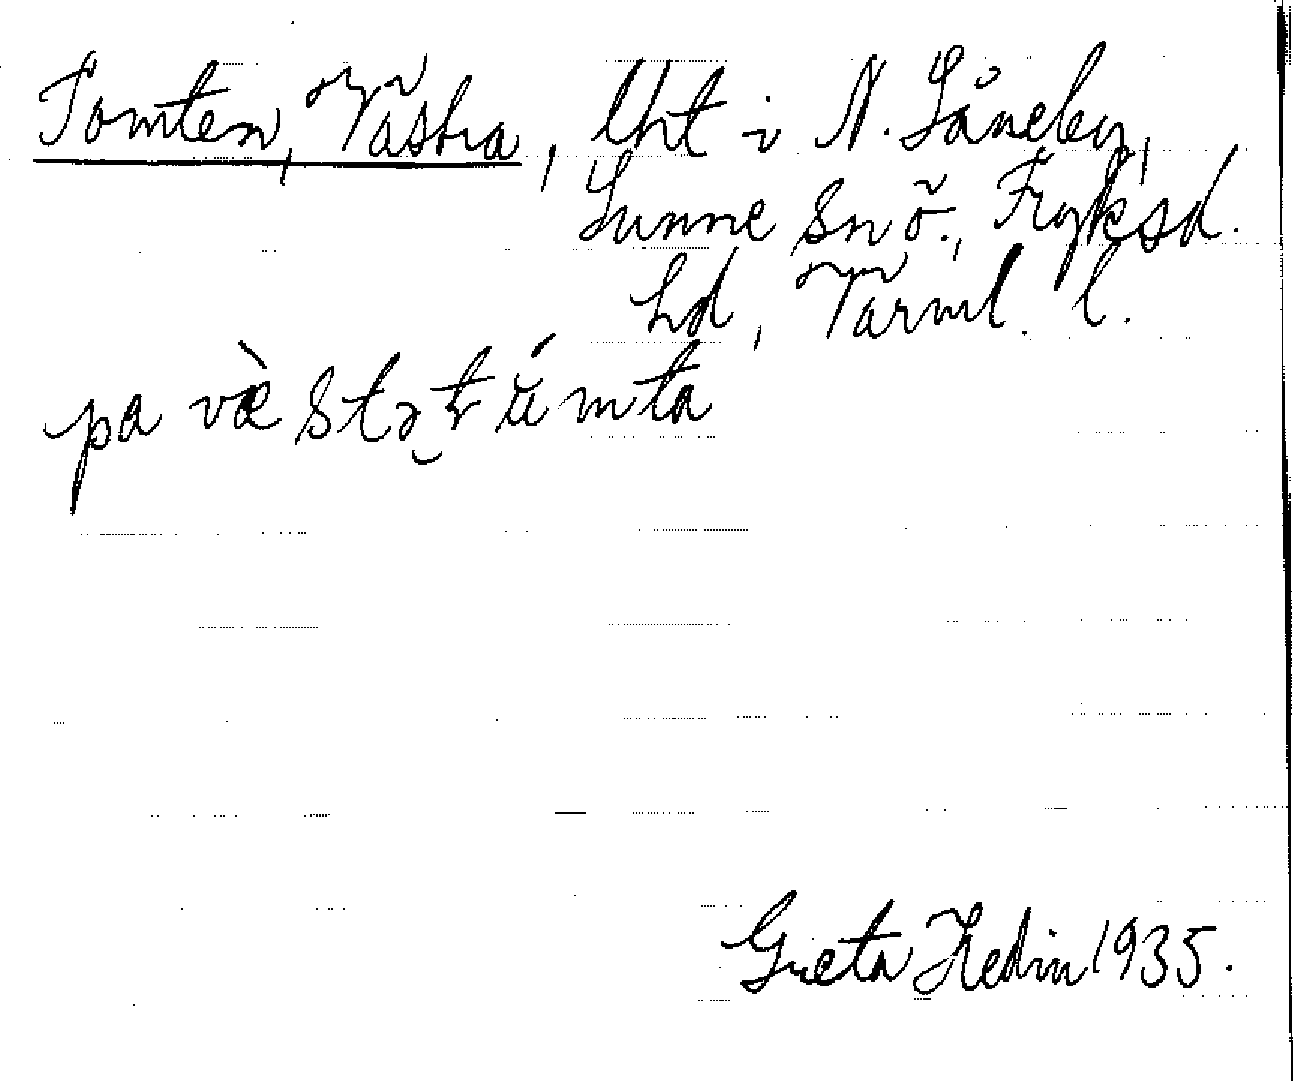 Tomten, Västra, lht i N. Låneby,
Sunne snö., Fryksd.
hd, Värml. l.
pa væ̀stə tŭ́mta
Greta Hedin 1935.